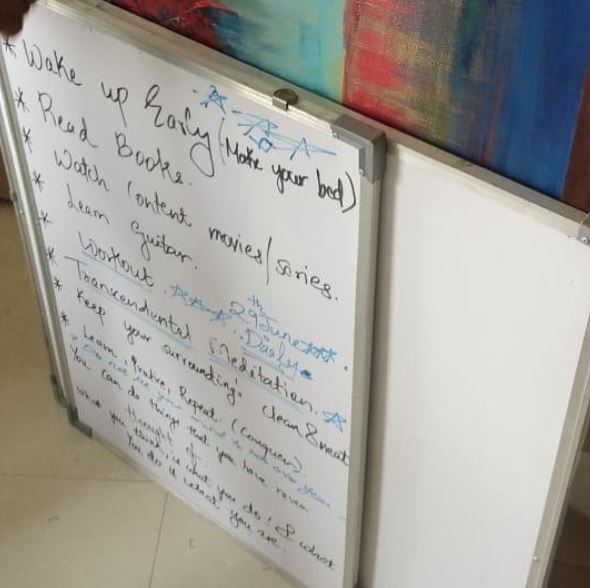 * Wake up Early (Make your bed)
* Read Books.
* Watch Content movies/series.
* Learn Guitar.
* Workout. 29th June
* Transcendental Meditation. Daily
* Keep your surroundings clean & neat
* Learn, Practice, Repeat. (Conquer)
* Do not let your mind to
You can do things that you have never
thought of.
what you think is what you do, & what
You do is what you are.